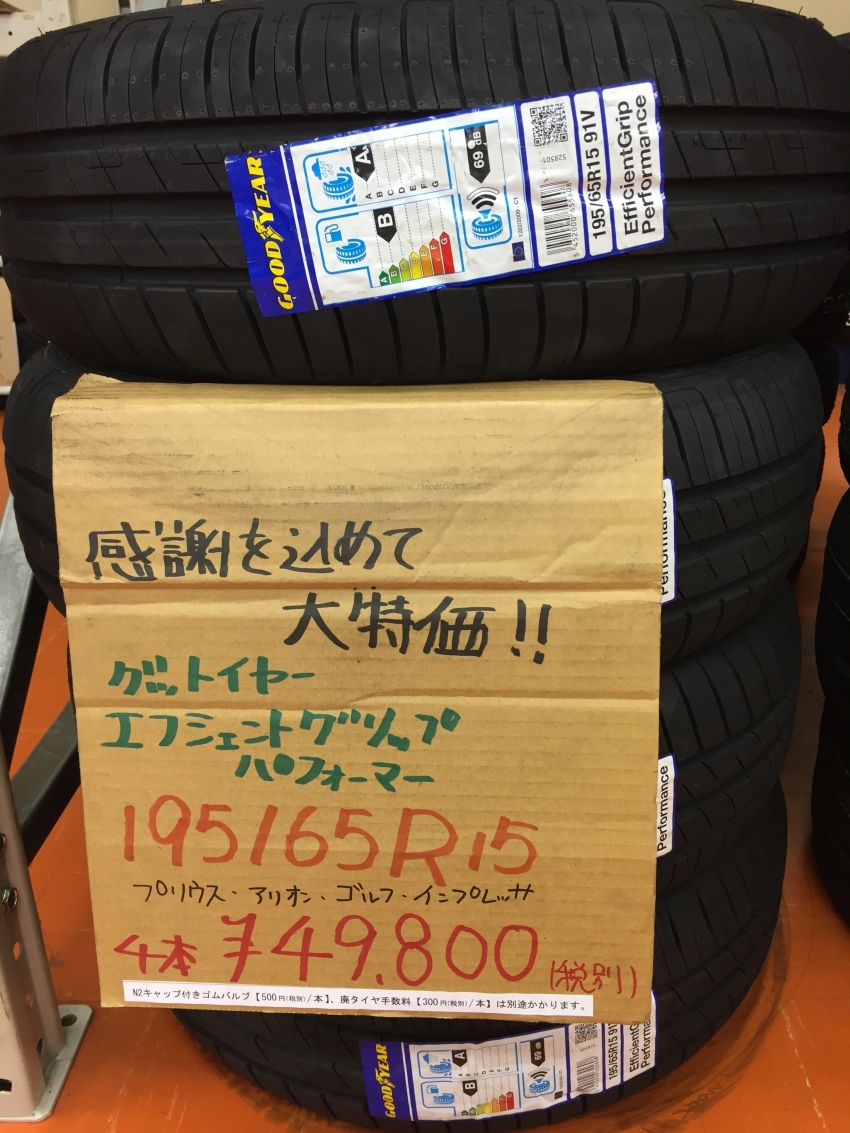 GOODYEAR
A
A
B
C
D
E
F
G
B
A
B
C
D
E
F
G
69 dB
1222/2009 - C1
528501
5 452000 655608
195/65R15 91V
EfficientGrip
Performance
Performance
Performance
感謝を込めて
大特価!!
グットイヤー
エフシェントグリップ
パフォーマー
195/65R15
プリウス・アリオン・ゴルフ・インプレッサ
4本 ¥49,800 (税別)
N2キャップ付きゴムバルブ【500円(税別)/本】、廃タイヤ手数料【300円(税別)/本】は別途かかります。
GOODYEAR
A
B
69 dB
195/65R15 91V
EfficientGrip
Performance